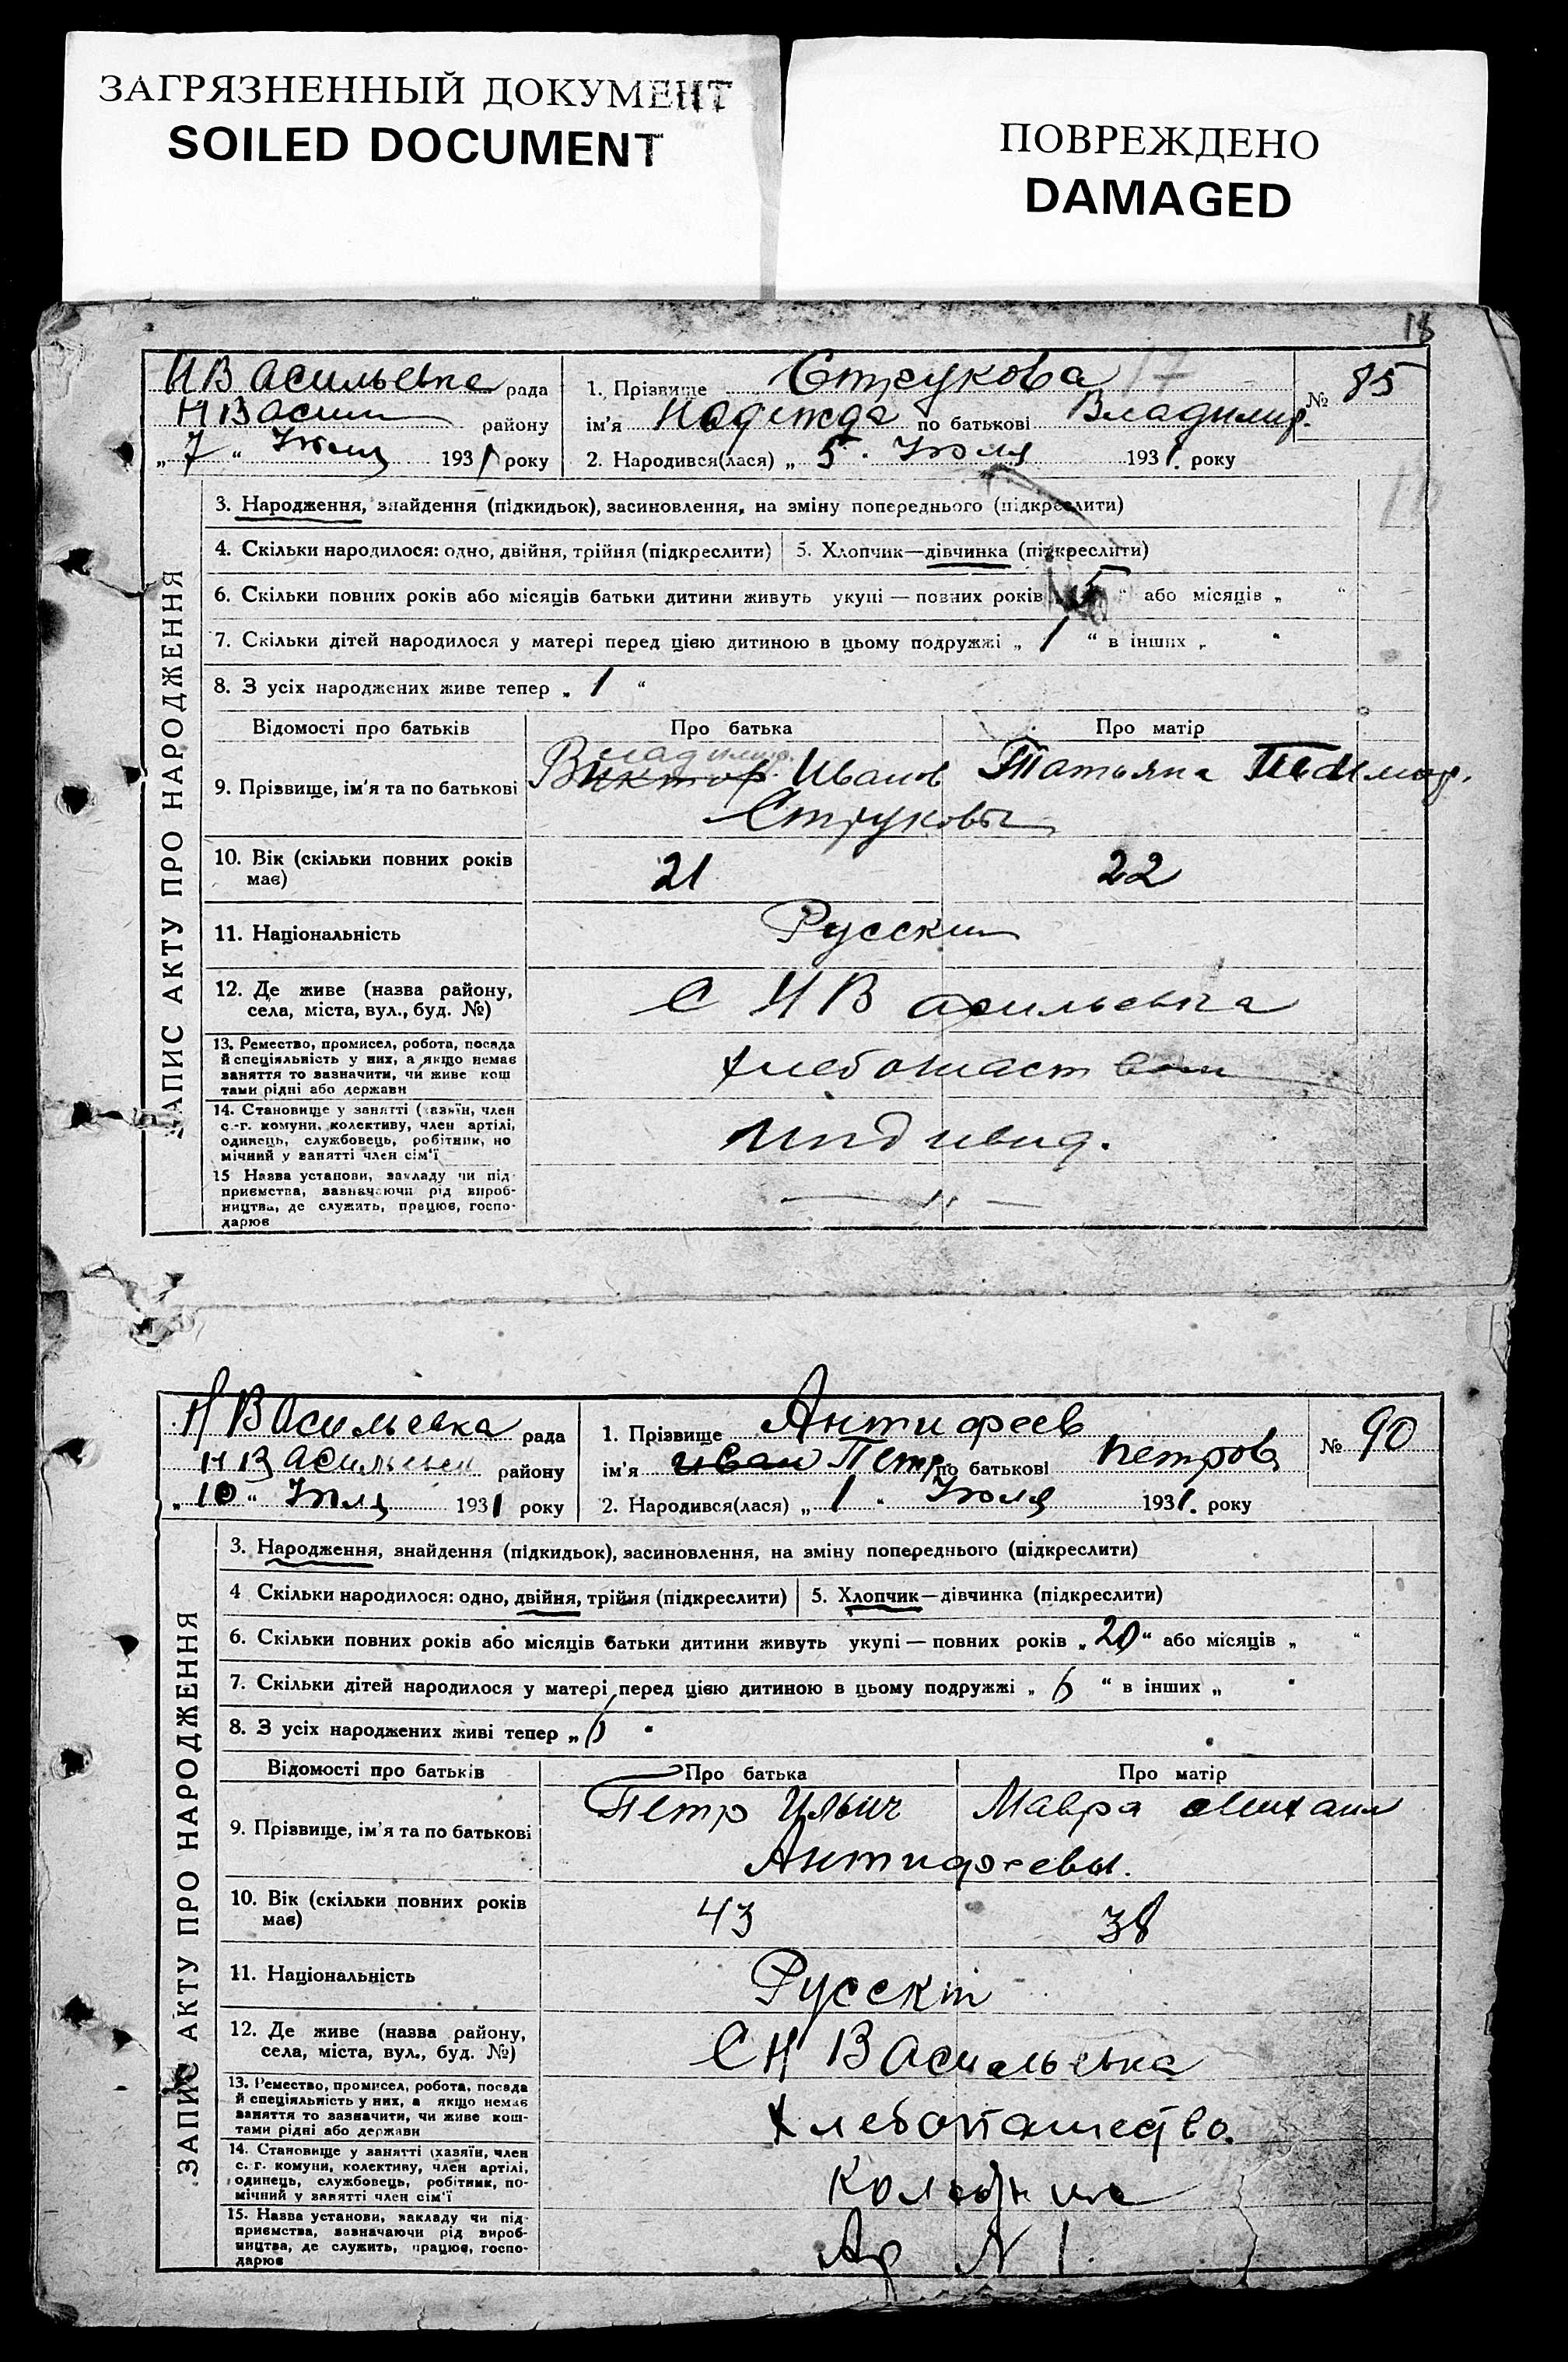 ЗАГРЯЗНЕННЫЙ ДОКУМЕНТ
SOILED DOCUMENT
ПОВРЕЖДЕНО
DAMAGED
18
ЗАПИС АКТУ ПРО НАРОДЖЕННЯ
НВасильевка рада
НВасил району
„ 7 “ Июля 1931 року
1. Прізвище Струкова 17
ім'я Надежда по батькові Владимир.
№ 85
2. Народився(лася) „ 5 “ Июля 1931. року
3. Народження, знайдення (підкидьок), засиновлення, на зміну попереднього (підкреслити)
4. Скільки народилося: одно, двійня, трійня (підкреслити) 5. Хлопчик—дівчинка (підкреслити)
6. Скільки повних років або місяців батьки дитини живуть укупі — повних років „ 5 “ або місяців „ “
7. Скільки дітей народилося у матері перед цією дитиною в цьому подружжі „ 1 “ в інших „ “
8. З усіх народжених живе тепер „ 1 “
Відомості про батьків Про батька Про матір
Владимир.
9. Прізвище, ім'я та по батькові Виктор. Иванов Татьяна
Струковы
10. Вік (скільки повних років має) 21 22
11. Національність Русский
12. Де живе (назва району, села, міста, вул., буд. №) С НВасильевка
13. Ремество, промисел, робота, посада
й спеціяльність у них, а якщо немає
заняття то зазначити, чи живе кош
тами рідні або держави
14. Становище у занятті (хазяїн, член
с.-г. комуни, колективу, член артілі,
одинець, службовець, робітник, по
мічний у занятті член сім'ї
Индивид.
15 Назва установи, закладу чи під-
приємства, зазначаючи рід вироб-
ництва, де служить, працює, госпо-
дарює
— „ —
ЗАПИС АКТУ ПРО НАРОДЖЕННЯ
НВасильевка рада
НВасильевки району
„ 10 “ Июля 1931 року
1. Прізвище Антифеев
ім'я Иван Петр по батькові Петров
№ 90
2. Народився(лася) „ 1 “ Июля 1931. року
3. Народження, знайдення (підкидьок), засиновлення, на зміну попереднього (підкреслити)
4 Скільки народилося: одно, двійня, трійня (підкреслити) 5. Хлопчик—дівчинка (підкреслити)
6. Скільки повних років або місяців батьки дитини живуть укупі — повних років „ 20 “ або місяців „ “
7. Скільки дітей народилося у матері перед цією дитиною в цьому подружжі „ 6 “ в інших „ “
8. З усіх народжених живі тепер „ 6 “
Відомості про батьків Про батька Про матір
9. Прізвище, ім'я та по батькові Петр Ильич Мавра Михаил
Антифеевы.
10. Вік (скільки повних років має) 43 38
11. Національність Русский
12. Де живе (назва району, села, міста, вул., буд. №) С Н Васильевка
13. Ремество, промисел, робота, посада
й спеціяльність у них, а якщо немає
заняття то зазначити, чи живе кош-
тами рідні або держави
Хлебопашество.
14. Становище у занятті (хазяїн, член
с. г. комуни, колективу, член артілі,
одинець, службовець, робітник, по-
мічний у занятті член сім'ї
15. Назва установи, закладу чи під-
приємства, зазначаючи рід вироб-
ництва, де служить, працює, госпо-
дарює
Ар N 1.